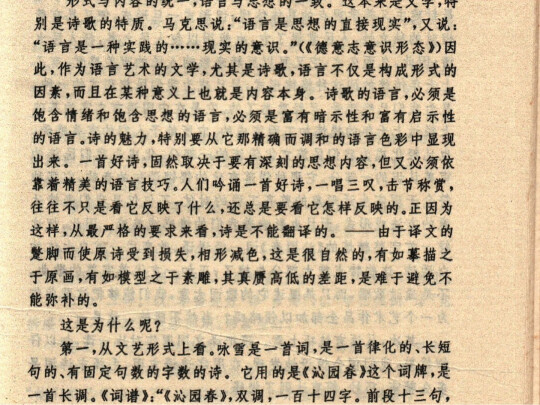 形式与内容的统一，语言与思想的一致。这本来是文学，特
别是诗歌的特质。马克思说：“语言是思想的直接现实”，又说：
“语言是一种实践的……现实的意识。”（《德意志意识形态》）因
此，作为语言艺术的文学，尤其是诗歌，语言不仅是构成形式的
因素，而且在某种意义上也就是内容本身。诗歌的语言，必须是
饱含情绪和饱含思想的语言，必须是富有暗示性和富有启示性
的语言。诗的魅力，特别要从它那精确而调和的语言色彩中显现
出来。一首好诗，固然取决于要有深刻的思想内容，但又必须依
靠着精美的语言技巧。人们吟诵一首好诗，一唱三叹，击节称赏，
往往不只是看它反映了什么，还总是要看它怎样反映的。正因为
这样，从最严格的要求来看，诗是不能翻译的。——由于译文的
蹩脚而使原诗受到损失，相形减色，这是很自然的，有如摹描之
于原画，有如模型之于素雕，其真赝高低的差距，是难于避免不
能弥补的。
这是为什么呢？
第一，从文艺形式上看。咏雪是一首词，是一首律化的、长短
句的、有固定句数的字数的诗。它用的是《沁园春》这个词牌，是
一首长调。《词谱》：“《沁园春》，双调，一百十四字。前段十三句，